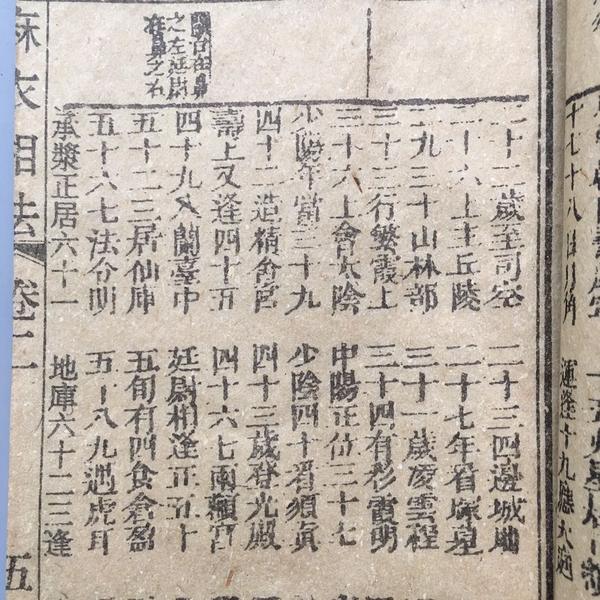 二十二歲至司空
二十三四邊城地
二十六上主丘陵
二十七年看塚墓
二九三十山林部
三十一歲凌雲程
三十三行繁霞上
三十四有彩霞明
三十六上會太陰
中陽正位三十七
少陽年當三十九
少陰四十看須真
四十二造精舍宮
四十三歲登光殿
壽上又逢四十五
四十六七兩顴宮
四十九入蘭臺中
廷尉相逢正五十
五十二三居仙庫
五旬有四食倉盈
五十六七法令明
五十八九遇虎耳
承漿正居六十一
地庫六十二三逢
蘭台在鼻
之左廷尉
在鼻之右
麻衣相法 卷二
五
十七十八日月角
運逢十九應天庭